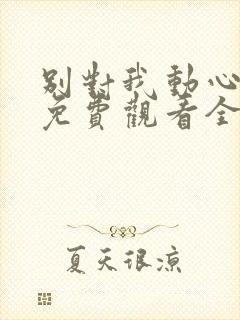 別對我動心
免費觀看全
夏天很涼